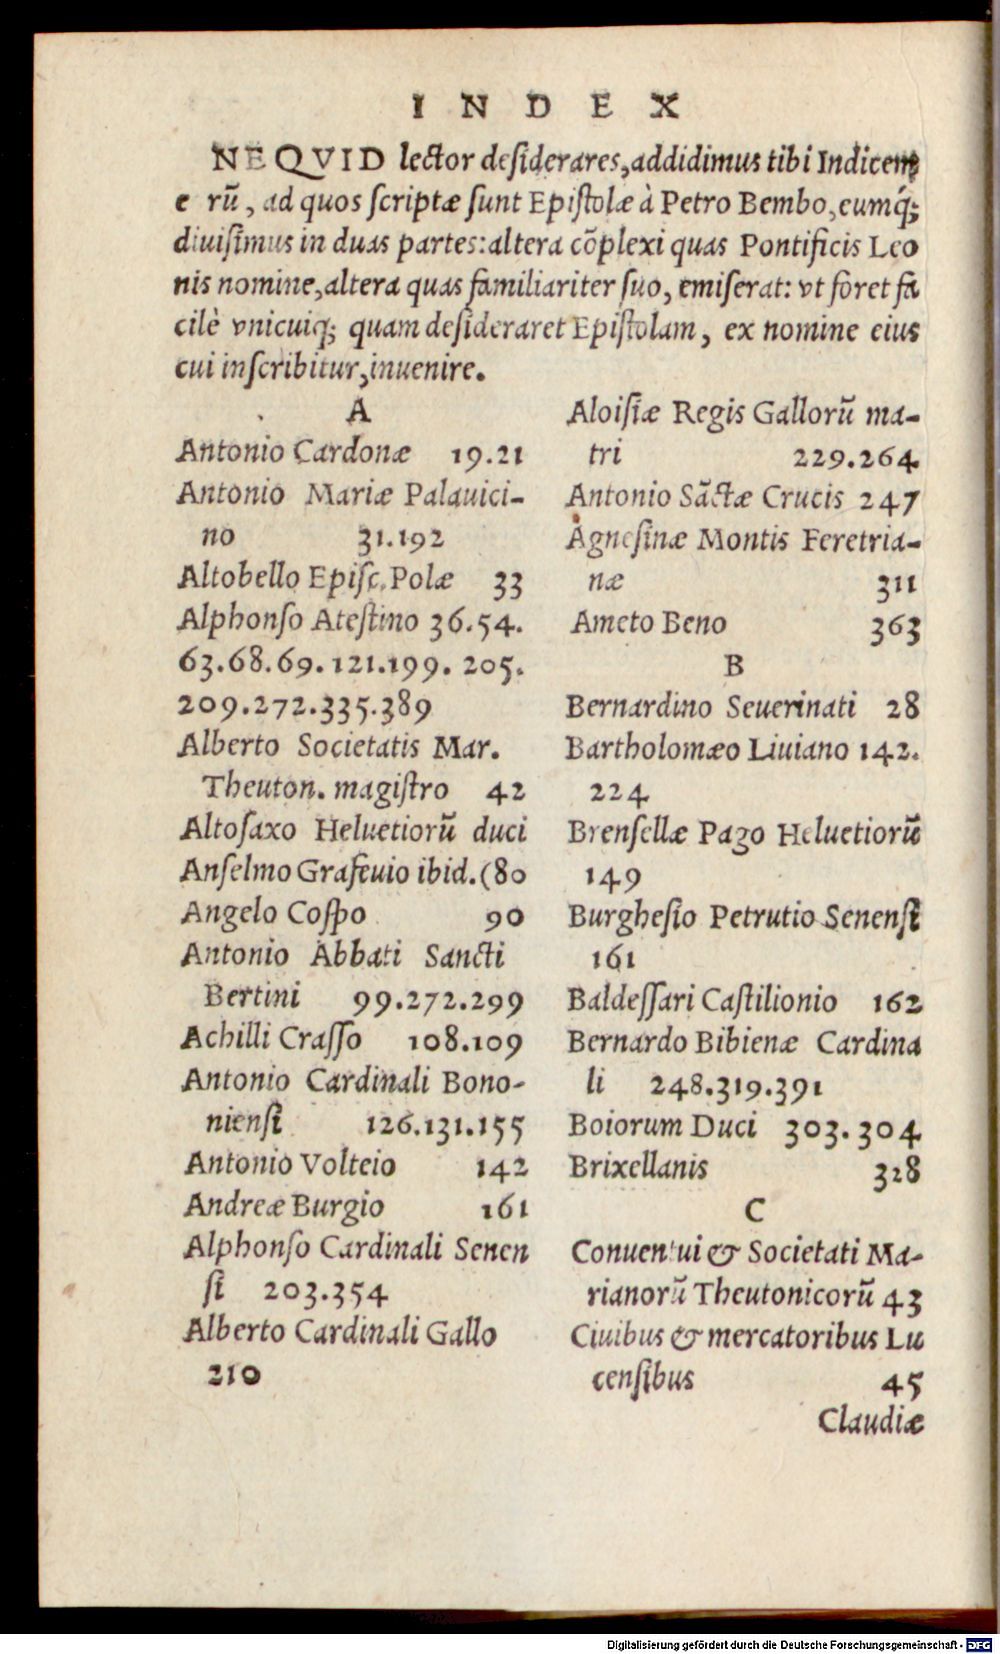 INDEX
NE QVID lector deſiderares, addidimus tibi Indicem
e rū, ad quos ſcriptæ ſunt Epiſtolæ à Petro Bembo, eumq́;
diuiſimus in duas partes: altera cōplexi quas Pontificis Leo
nis nomine, altera quas familiariter ſuo, emiſerat: vt foret fa
cilè vnicuiq; quam deſideraret Epiſtolam, ex nomine eius
cui inſcribitur, inuenire.
A
Antonio Cardonæ 19.21
Antonio Mariæ Palauici-
no 31.192
Altobello Epiſc. Polæ 33
Alphonſo Ateſtino 36.54.
63.68.69.121.199.205.
209.272.335.389
Alberto Societatis Mar.
Theuton. magiſtro 42
Altoſaxo Heluetiorū duci
Anſelmo Grafeuio ibid. (80
Angelo Coſpo 90
Antonio Abbati Sancti
Bertini 99.272.299
Achilli Craſſo 108.109
Antonio Cardinali Bono-
nienſi 126.131.155
Antonio Volteio 142
Andreæ Burgio 161
Alphonſo Cardinali Senen
ſi 203.354
Alberto Cardinali Gallo
210
Aloiſiæ Regis Gallorū ma-
tri 229.264
Antonio Sāctæ Crucis 247
Agneſinæ Montis Feretria-
næ 311
Ameto Beno 363
B
Bernardino Seuerinati 28
Bartholomæo Liuiano 142.
224
Brenſellæ Pago Heluetiorū
149
Burgheſio Petrutio Senenſi
161
Baldeſſari Caſtilionio 162
Bernardo Bibienæ Cardina
li 248.319.391
Boiorum Duci 303.304
Brixellanis 328
C
Conuentui & Societati Ma-
rianorū Theutonicorū 43
Ciuibus & mercatoribus Lu
cenſibus 45
Claudiæ
Digitalisierung gefördert durch die Deutsche Forschungsgemeinschaft - DFG